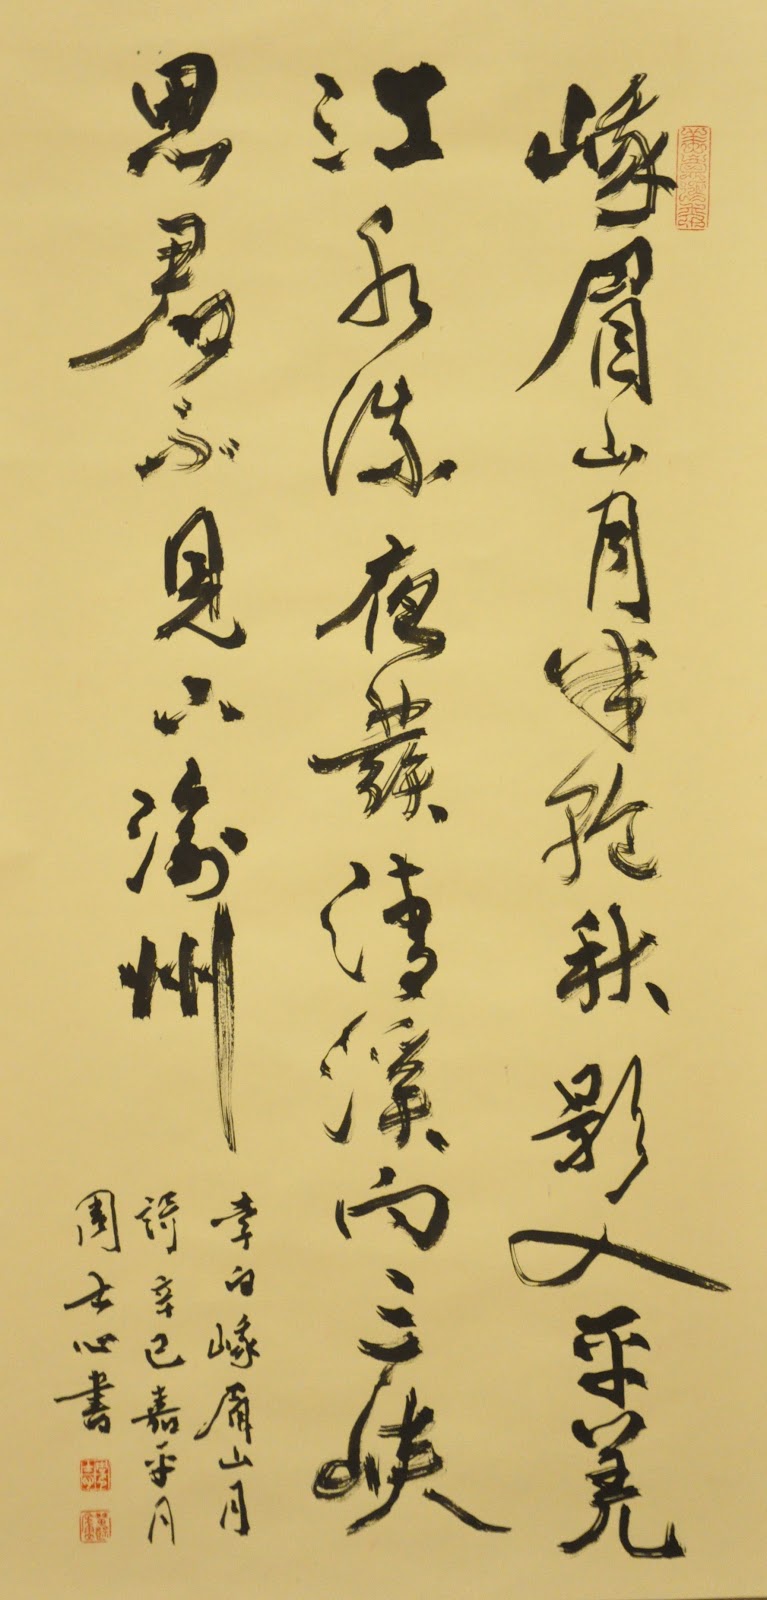 峨眉山月半輪秋影入平羌
江水流夜發清溪向三峽
思君不見下渝州
李白峨眉山月
詩辛巳嘉平月
周士心書